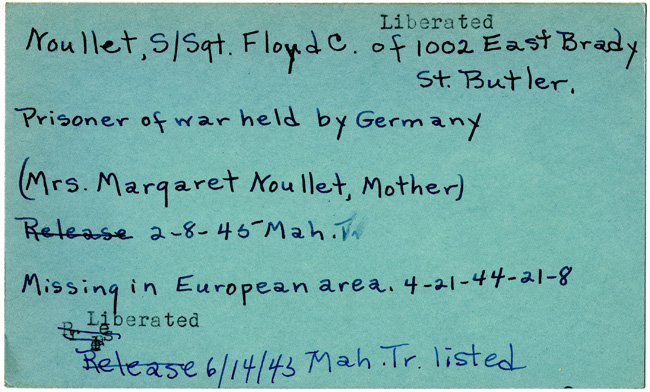 Liberated
Noullet, S/Sgt. Floyd C. of 1002 East Brady
St. Butler.
Prisoner of war held by Germany
(Mrs. Margaret Noullet, Mother)
Release 2-8-45 Mah. Tr
Missing in European area. 4-21-44-21-8
Liberated
Release 6/14/45 Mah. Tr. listed